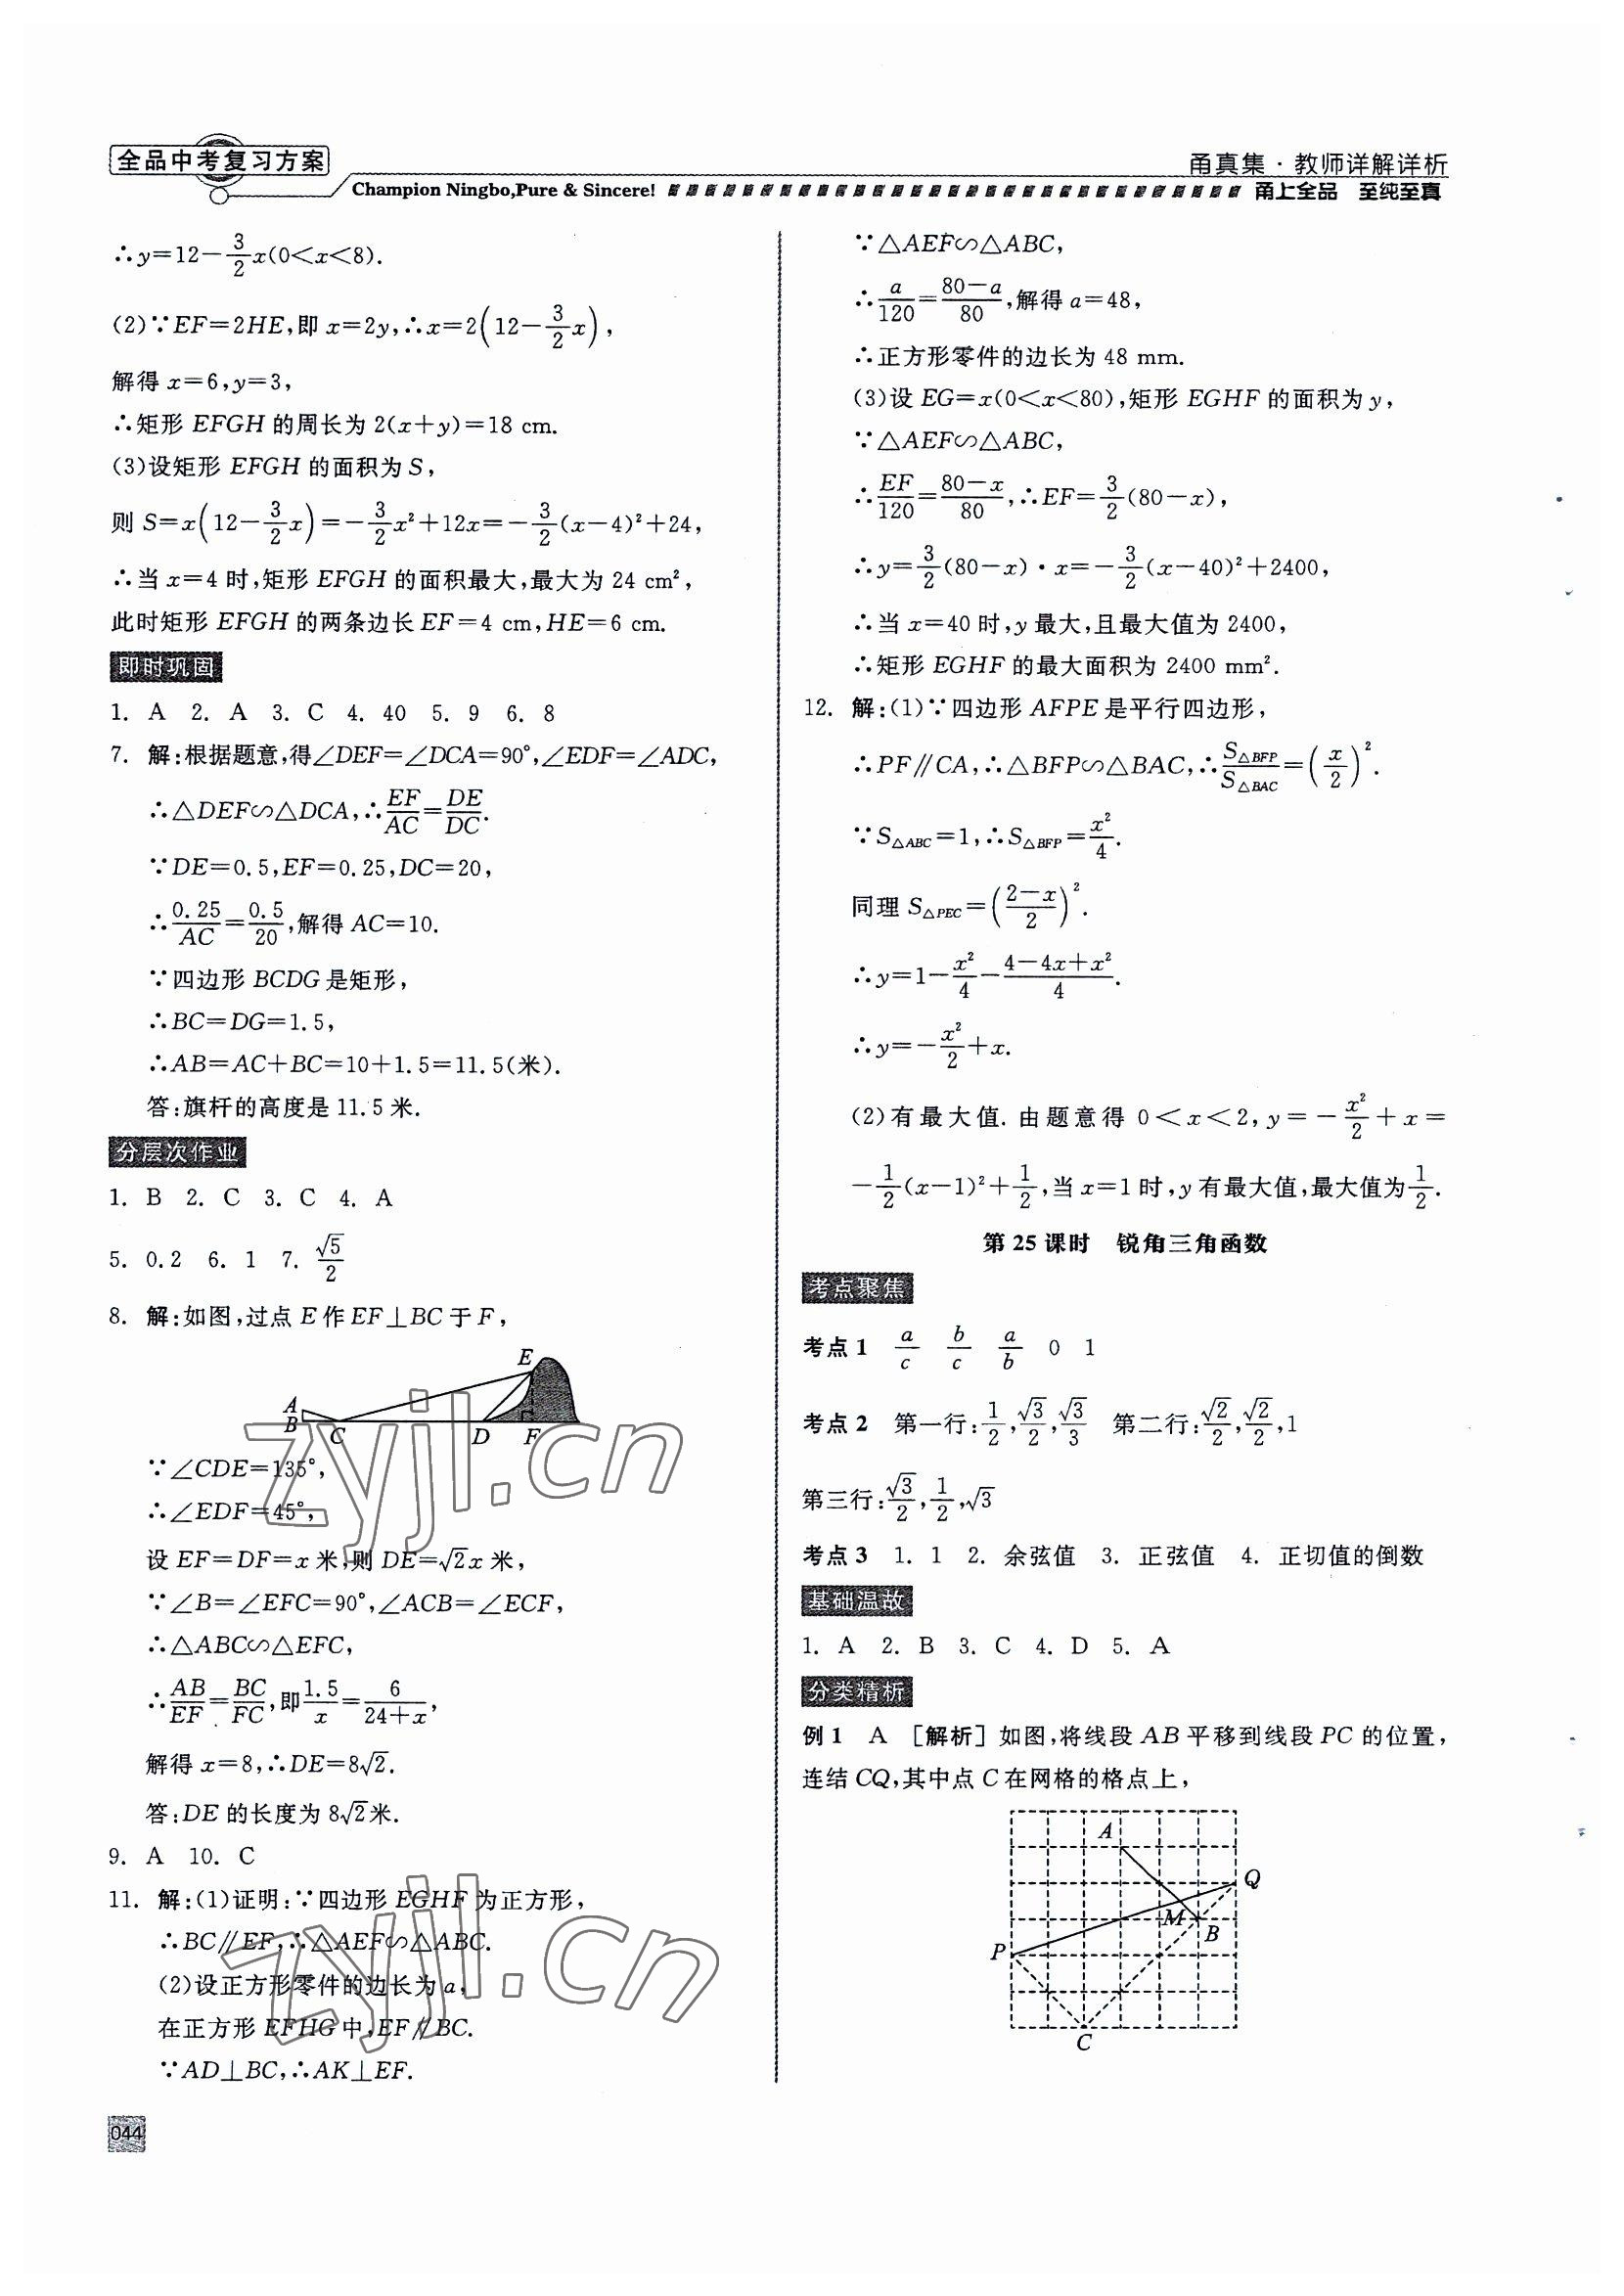 全品中考复习方案
甬真集·教师详解详析
Champion Ningbo,Pure & Sincere!
甬上全品 至纯至真
∴y=12-3/2x(0<x<8).
(2)∵EF=2HE,即 x=2y,∴x=2(12-3/2x),
解得 x=6,y=3,
∴矩形 EFGH 的周长为 2(x+y)=18 cm.
(3)设矩形 EFGH 的面积为 S,
则 S=x(12-3/2x)=-3/2x²+12x=-3/2(x-4)²+24,
∴当 x=4 时,矩形 EFGH 的面积最大,最大为 24 cm²,
此时矩形 EFGH 的两条边长 EF=4 cm,HE=6 cm.
即时巩固
1. A 2. A 3. C 4. 40 5. 9 6. 8
7. 解:根据题意,得∠DEF=∠DCA=90°,∠EDF=∠ADC,
∴△DEF∽△DCA,∴EF/AC=DE/DC.
∵DE=0.5,EF=0.25,DC=20,
∴0.25/AC=0.5/20,解得 AC=10.
∵四边形 BCDG 是矩形,
∴BC=DG=1.5,
∴AB=AC+BC=10+1.5=11.5(米).
答:旗杆的高度是 11.5 米.
分层次作业
1. B 2. C 3. C 4. A
5. 0.2 6. 1 7. √5/2
8. 解:如图,过点 E 作 EF⊥BC 于 F,
E
A
B
C
D
F
∵∠CDE=135°,
∴∠EDF=45°,
设 EF=DF=x 米,则 DE=√2x 米,
∵∠B=∠EFC=90°,∠ACB=∠ECF,
∴△ABC∽△EFC,
∴AB/EF=BC/FC,即1.5/x=6/(24+x),
解得 x=8,∴DE=8√2.
答:DE 的长度为 8√2米.
9. A 10. C
11. 解:(1)证明:∵四边形 EGHF 为正方形,
∴BC∥EF,∴△AEF∽△ABC.
(2)设正方形零件的边长为 a,
在正方形 EFHG 中,EF∥BC.
∵AD⊥BC,∴AK⊥EF.
044
∵△AEF∽△ABC,
∴a/120=(80-a)/80,解得 a=48,
∴正方形零件的边长为 48 mm.
(3)设 EG=x(0<x<80),矩形 EGHF 的面积为 y,
∵△AEF∽△ABC,
∴EF/120=(80-x)/80,∴EF=3/2(80-x),
∴y=3/2(80-x)·x=-3/2(x-40)²+2400,
∴当 x=40 时,y 最大,且最大值为 2400,
∴矩形 EGHF 的最大面积为 2400 mm².
12. 解:(1)∵四边形 AFPE 是平行四边形,
∴PF∥CA,∴△BFP∽△BAC,∴S△BFP/S△BAC=(x/2)².
∵S△ABC=1,∴S△BFP=x²/4.
同理 S△PEC=((2-x)/2)².
∴y=1-x²/4-(4-4x+x²)/4.
∴y=-x²/2+x.
(2)有最大值. 由题意得 0<x<2,y=-x²/2+x=
-1/2(x-1)²+1/2,当 x=1 时,y 有最大值,最大值为1/2.
第 25 课时 锐角三角函数
考点聚焦
考点 1 a/c b/c a/b 0 1
考点 2 第一行:1/2,√3/2,√3/3 第二行:√2/2,√2/2,1
第三行:√3/2,1/2,√3
考点 3 1. 1 2. 余弦值 3. 正弦值 4. 正切值的倒数
基础温故
1. A 2. B 3. C 4. D 5. A
分类精析
例 1 A [解析]如图,将线段 AB 平移到线段 PC 的位置,
连结 CQ,其中点 C 在网格的格点上,
A
Q
M
B
P
C
zyjl.cn
zyjl.cn